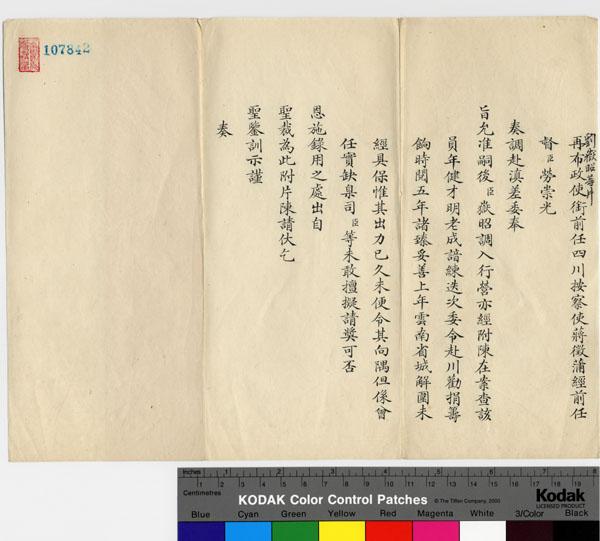 劉嶽昭等片
再布政使銜前任四川按察使蔣徵蒲經前任
督臣勞崇光
奏調赴滇差委奉
旨允准嗣後臣嶽昭調入行營亦經附陳在案查該
員年健才明老成諳練迭次委令赴川勸捐籌
餉時閱五年諸臻妥善上年雲南省城解圍未
經具保惟其出力已久未便令其向隅但係曾
任實缺臬司臣等未敢擅擬請獎可否
恩施錄用之處出自
聖裁為此附片陳請伏乞
聖鑒訓示謹
奏
107842
Inches 1 2 3 4 5 6 7 8
Centimetres 1 2 3 4 5 6 7 8 9 10 11 12 13 14 15 16 17 18 19
KODAK Color Control Patches © The Tiffen Company, 2000 Kodak
LICENSED PRODUCT
Blue Cyan Green Yellow Red Magenta White 3/Color Black